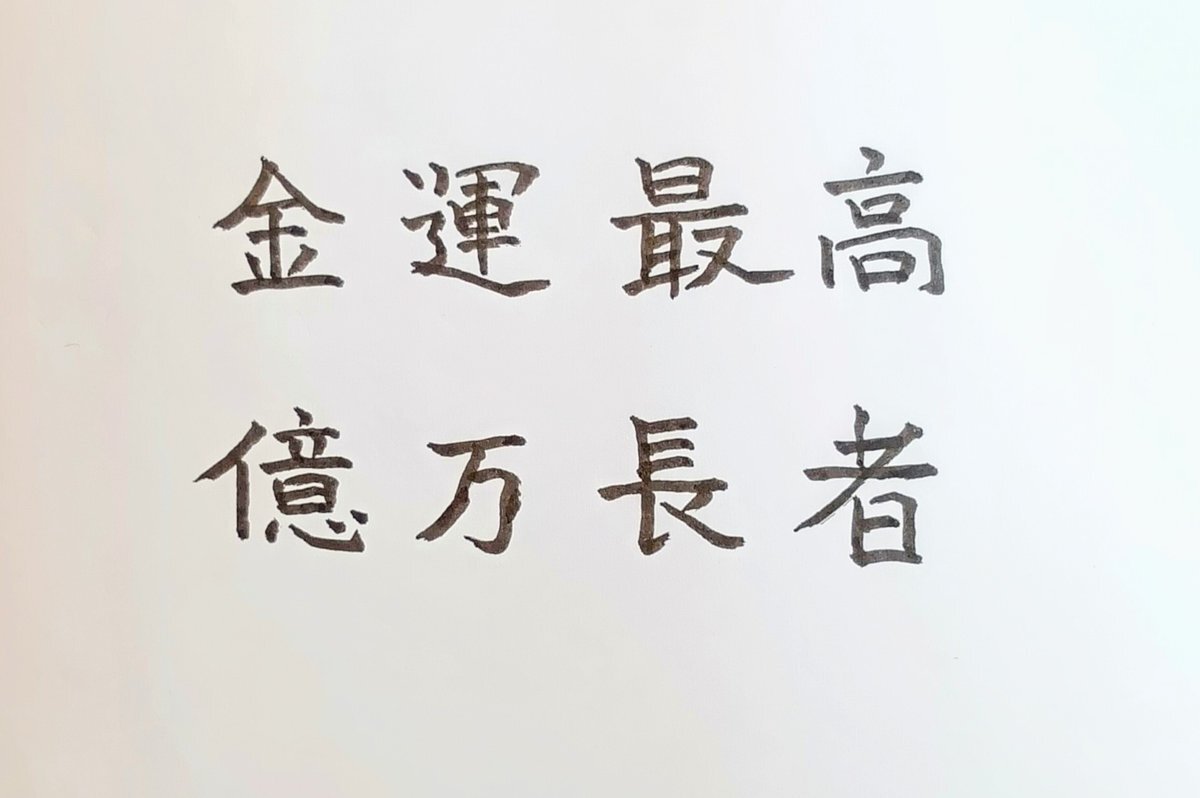 金運最高
億万長者